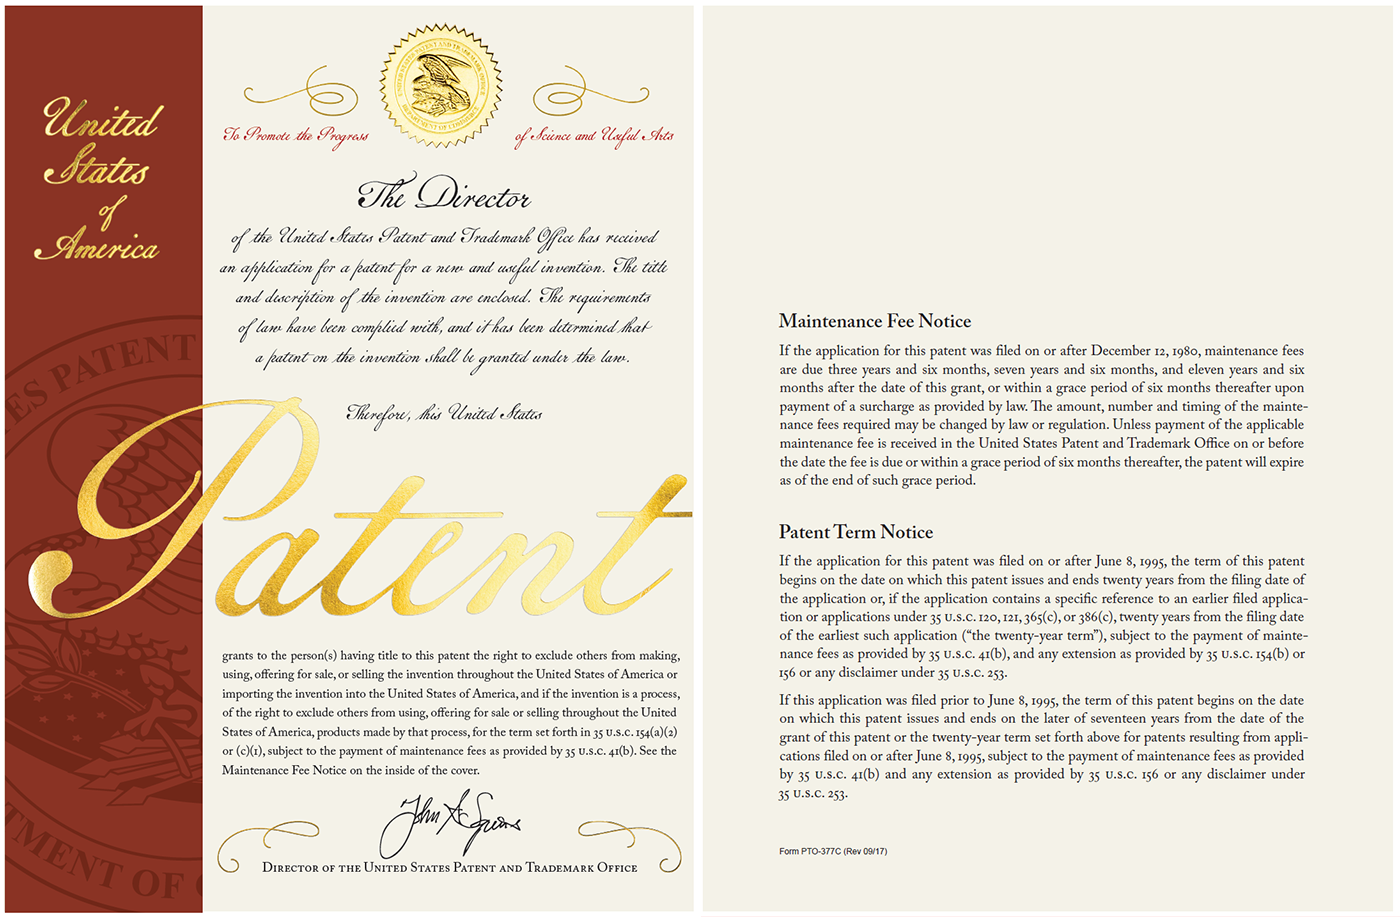 United
States
of
America
UNITED STATES PATENT AND TRADEMARK OFFICE
DEPARTMENT OF COMMERCE
To Promote the Progress
of Science and Useful Arts
The Director
of the United States Patent and Trademark Office has received
an application for a patent for a new and useful invention. The title
and description of the invention are enclosed. The requirements
of law have been complied with, and it has been determined that
a patent on the invention shall be granted under the law.
Therefore, this United States
ES PATENT
Patent
grants to the person(s) having title to this patent the right to exclude others from making,
using, offering for sale, or selling the invention throughout the United States of America or
importing the invention into the United States of America, and if the invention is a process,
of the right to exclude others from using, offering for sale or selling throughout the United
States of America, products made by that process, for the term set forth in 35 U.S.C. 154(a)(2)
or (c)(1), subject to the payment of maintenance fees as provided by 35 U.S.C. 41(b). See the
Maintenance Fee Notice on the inside of the cover.
TMENT OF C
John A. Squires
Director of the United States Patent and Trademark Office
Maintenance Fee Notice
If the application for this patent was filed on or after December 12, 1980, maintenance fees
are due three years and six months, seven years and six months, and eleven years and six
months after the date of this grant, or within a grace period of six months thereafter upon
payment of a surcharge as provided by law. The amount, number and timing of the mainte-
nance fees required may be changed by law or regulation. Unless payment of the applicable
maintenance fee is received in the United States Patent and Trademark Office on or before
the date the fee is due or within a grace period of six months thereafter, the patent will expire
as of the end of such grace period.
Patent Term Notice
If the application for this patent was filed on or after June 8, 1995, the term of this patent
begins on the date on which this patent issues and ends twenty years from the filing date of
the application or, if the application contains a specific reference to an earlier filed applica-
tion or applications under 35 U.S.C. 120, 121, 365(c), or 386(c), twenty years from the filing date
of the earliest such application (“the twenty-year term”), subject to the payment of mainte-
nance fees as provided by 35 U.S.C. 41(b), and any extension as provided by 35 U.S.C. 154(b) or
156 or any disclaimer under 35 U.S.C. 253.
If this application was filed prior to June 8, 1995, the term of this patent begins on the date
on which this patent issues and ends on the later of seventeen years from the date of the
grant of this patent or the twenty-year term set forth above for patents resulting from appli-
cations filed on or after June 8, 1995, subject to the payment of maintenance fees as provided
by 35 U.S.C. 41(b) and any extension as provided by 35 U.S.C. 156 or any disclaimer under
35 U.S.C. 253.
Form PTO-377C (Rev 09/17)